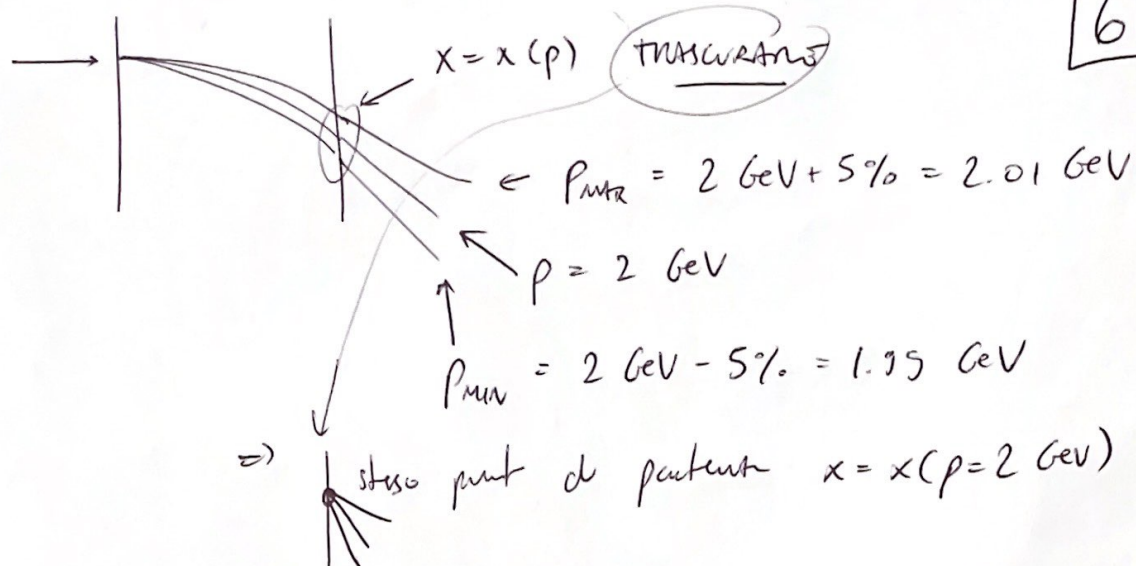 6
x = x (p) TRASCURARE
← PMAX = 2 GeV + 5% = 2.01 GeV
p = 2 GeV
PMIN = 2 GeV - 5% = 1.95 GeV
=> steso punt di x = x(p=2 GeV)